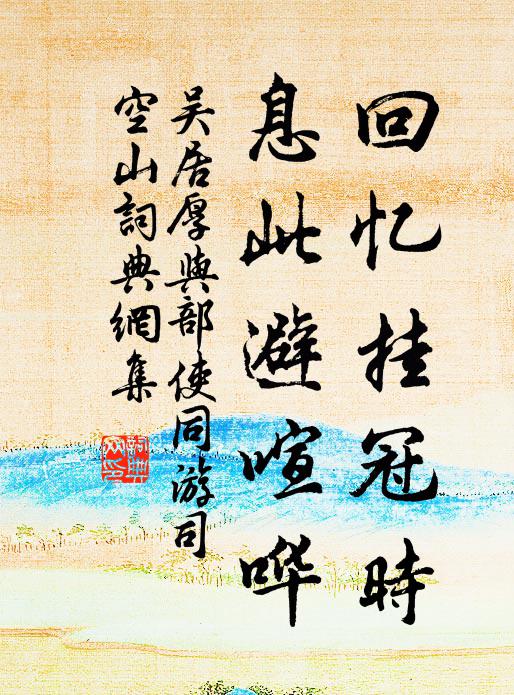 回忆挂冠時
息此避喧哗
吴居厚與部使同游司
空山詞典網集